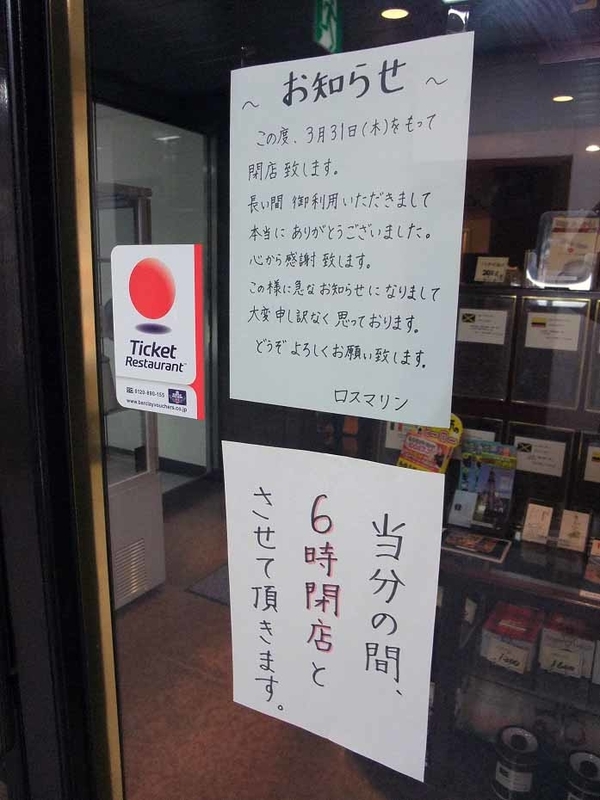 ～ お知らせ ～
この度、3月31日(木)をもって
閉店致します。
長い間 御利用いただきまして
本当に ありがとうございました。
心から感謝 致します。
この様に急な お知らせに なりまして
大変 申し訳なく 思っております。
どうぞ よろしくお願い致します。
ロスマリン
Ticket
Restaurant
www.barclayvouchers.co.jp
当分の間、
6時閉店と
させて頂きます。